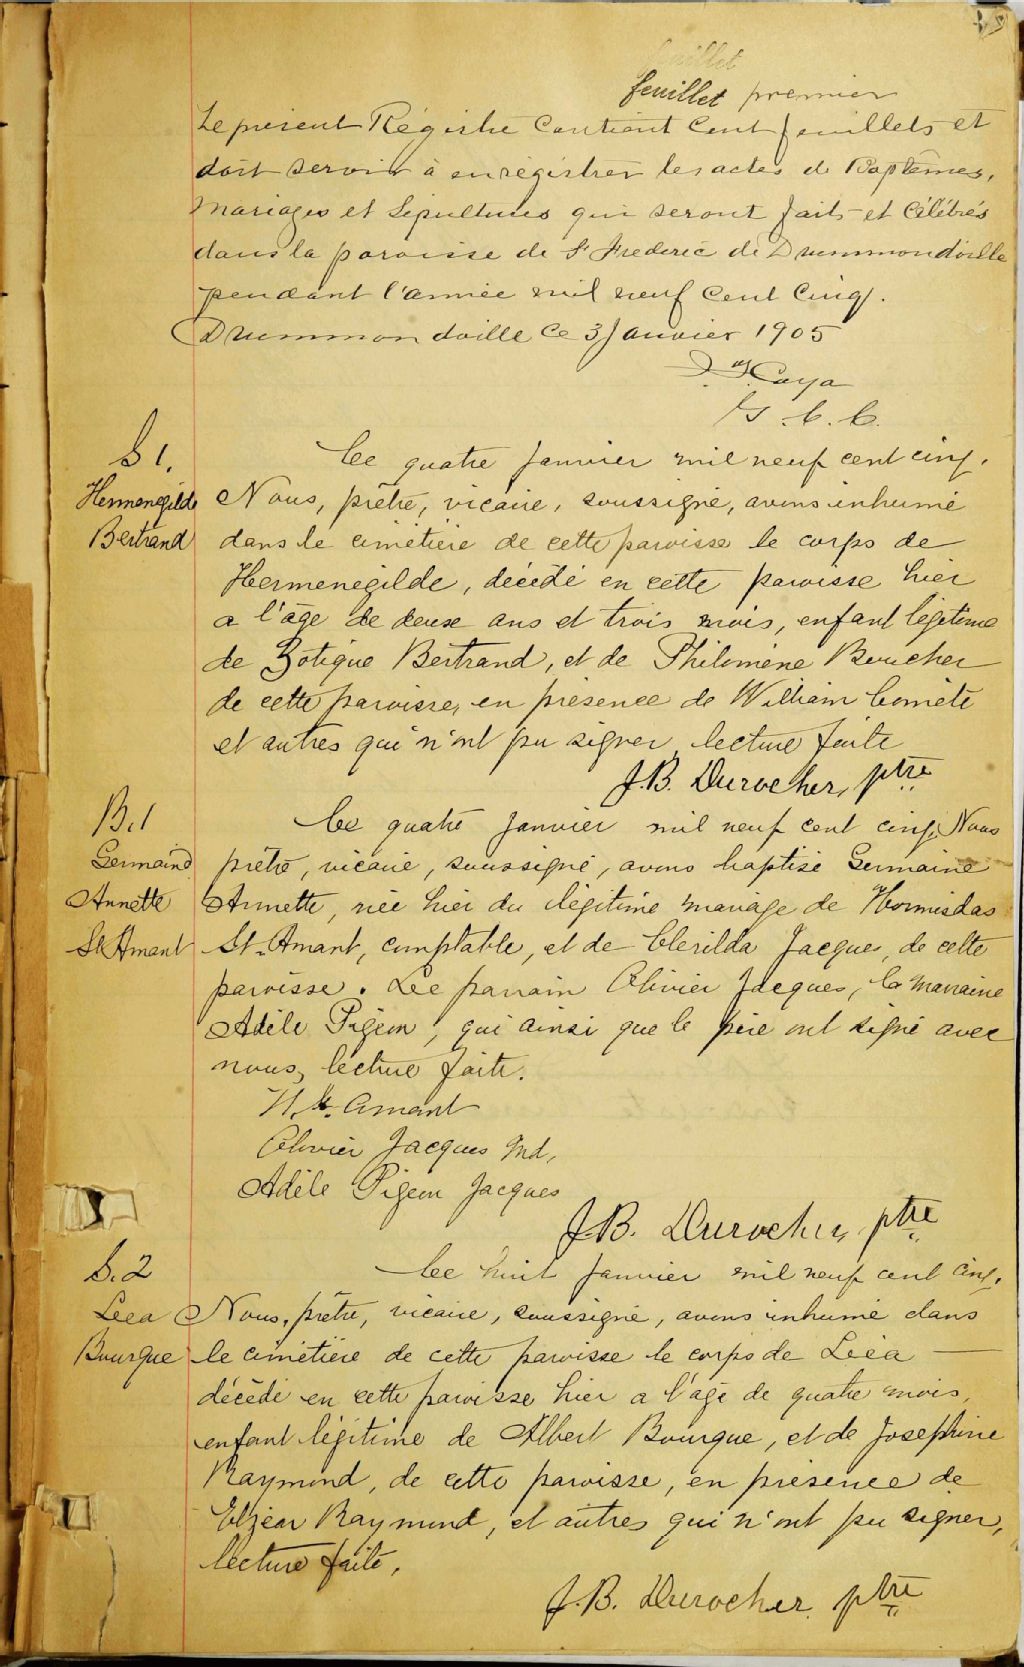 feuillet
feuillet premier
Le présent Régistre contient cent feuillets et
doit servir à enrégistrer les actes de Baptêmes,
Mariages et Sépultures qui seront faits et Célébrés
dans la paroisse de St Frédéric de Drummondville
pendant l'année mil neuf cent Cinq.
Drummondville Ce 3 Janvier 1905
Caya
C. C.
S 1.
Hermenegilde
Bertrand
Ce quatre janvier mil neuf cent cinq.
Nous, prêtre, vicaire, soussigné, avons inhumé
dans le cimetière de cette paroisse le corps de
Hermenegilde, décédé en cette paroisse hier
a l'âge de deux ans et trois mois, enfant légitime
de Zotique Bertrand, et de Philomène Boucher
de cette paroisse, en présence de William Comête
et autres qui n'ont pu signer, lecture faite
J.B. Durocher, ptre
B.1
Germaine
Annette
St Amant
Ce quatre janvier mil neuf cent cinq, Nous
prêtre, vicaire, soussigné, avons baptisé Germaine
Annette, née hier du légitime mariage de Hormisdas
St. Amant, comptable, et de Clerilda Jacques, de cette
paroisse. Le parrain Olivier Jacques, la marraine
Adèle Pigeon, qui ainsi que le père ont signé avec
nous, lecture faite.
H. St. Amant
Olivier Jacques Md,
Adèle Pigeon Jacques
J.B. Durocher, ptre
S.2
Leea
Bourque
Ce huit janvier mil neuf cent cinq.
Nous, prêtre, vicaire, soussigné, avons inhumé dans
le cimetière de cette paroisse le corps de Léea
décédé en cette paroisse hier a l'âge de quatre mois,
enfant légitime de Albert Bourque, et de Josephine
Raymond, de cette paroisse, en présence de
Elzéar Raymond, et autres qui n'ont pu signer,
lecture faite.
J.B. Durocher ptre